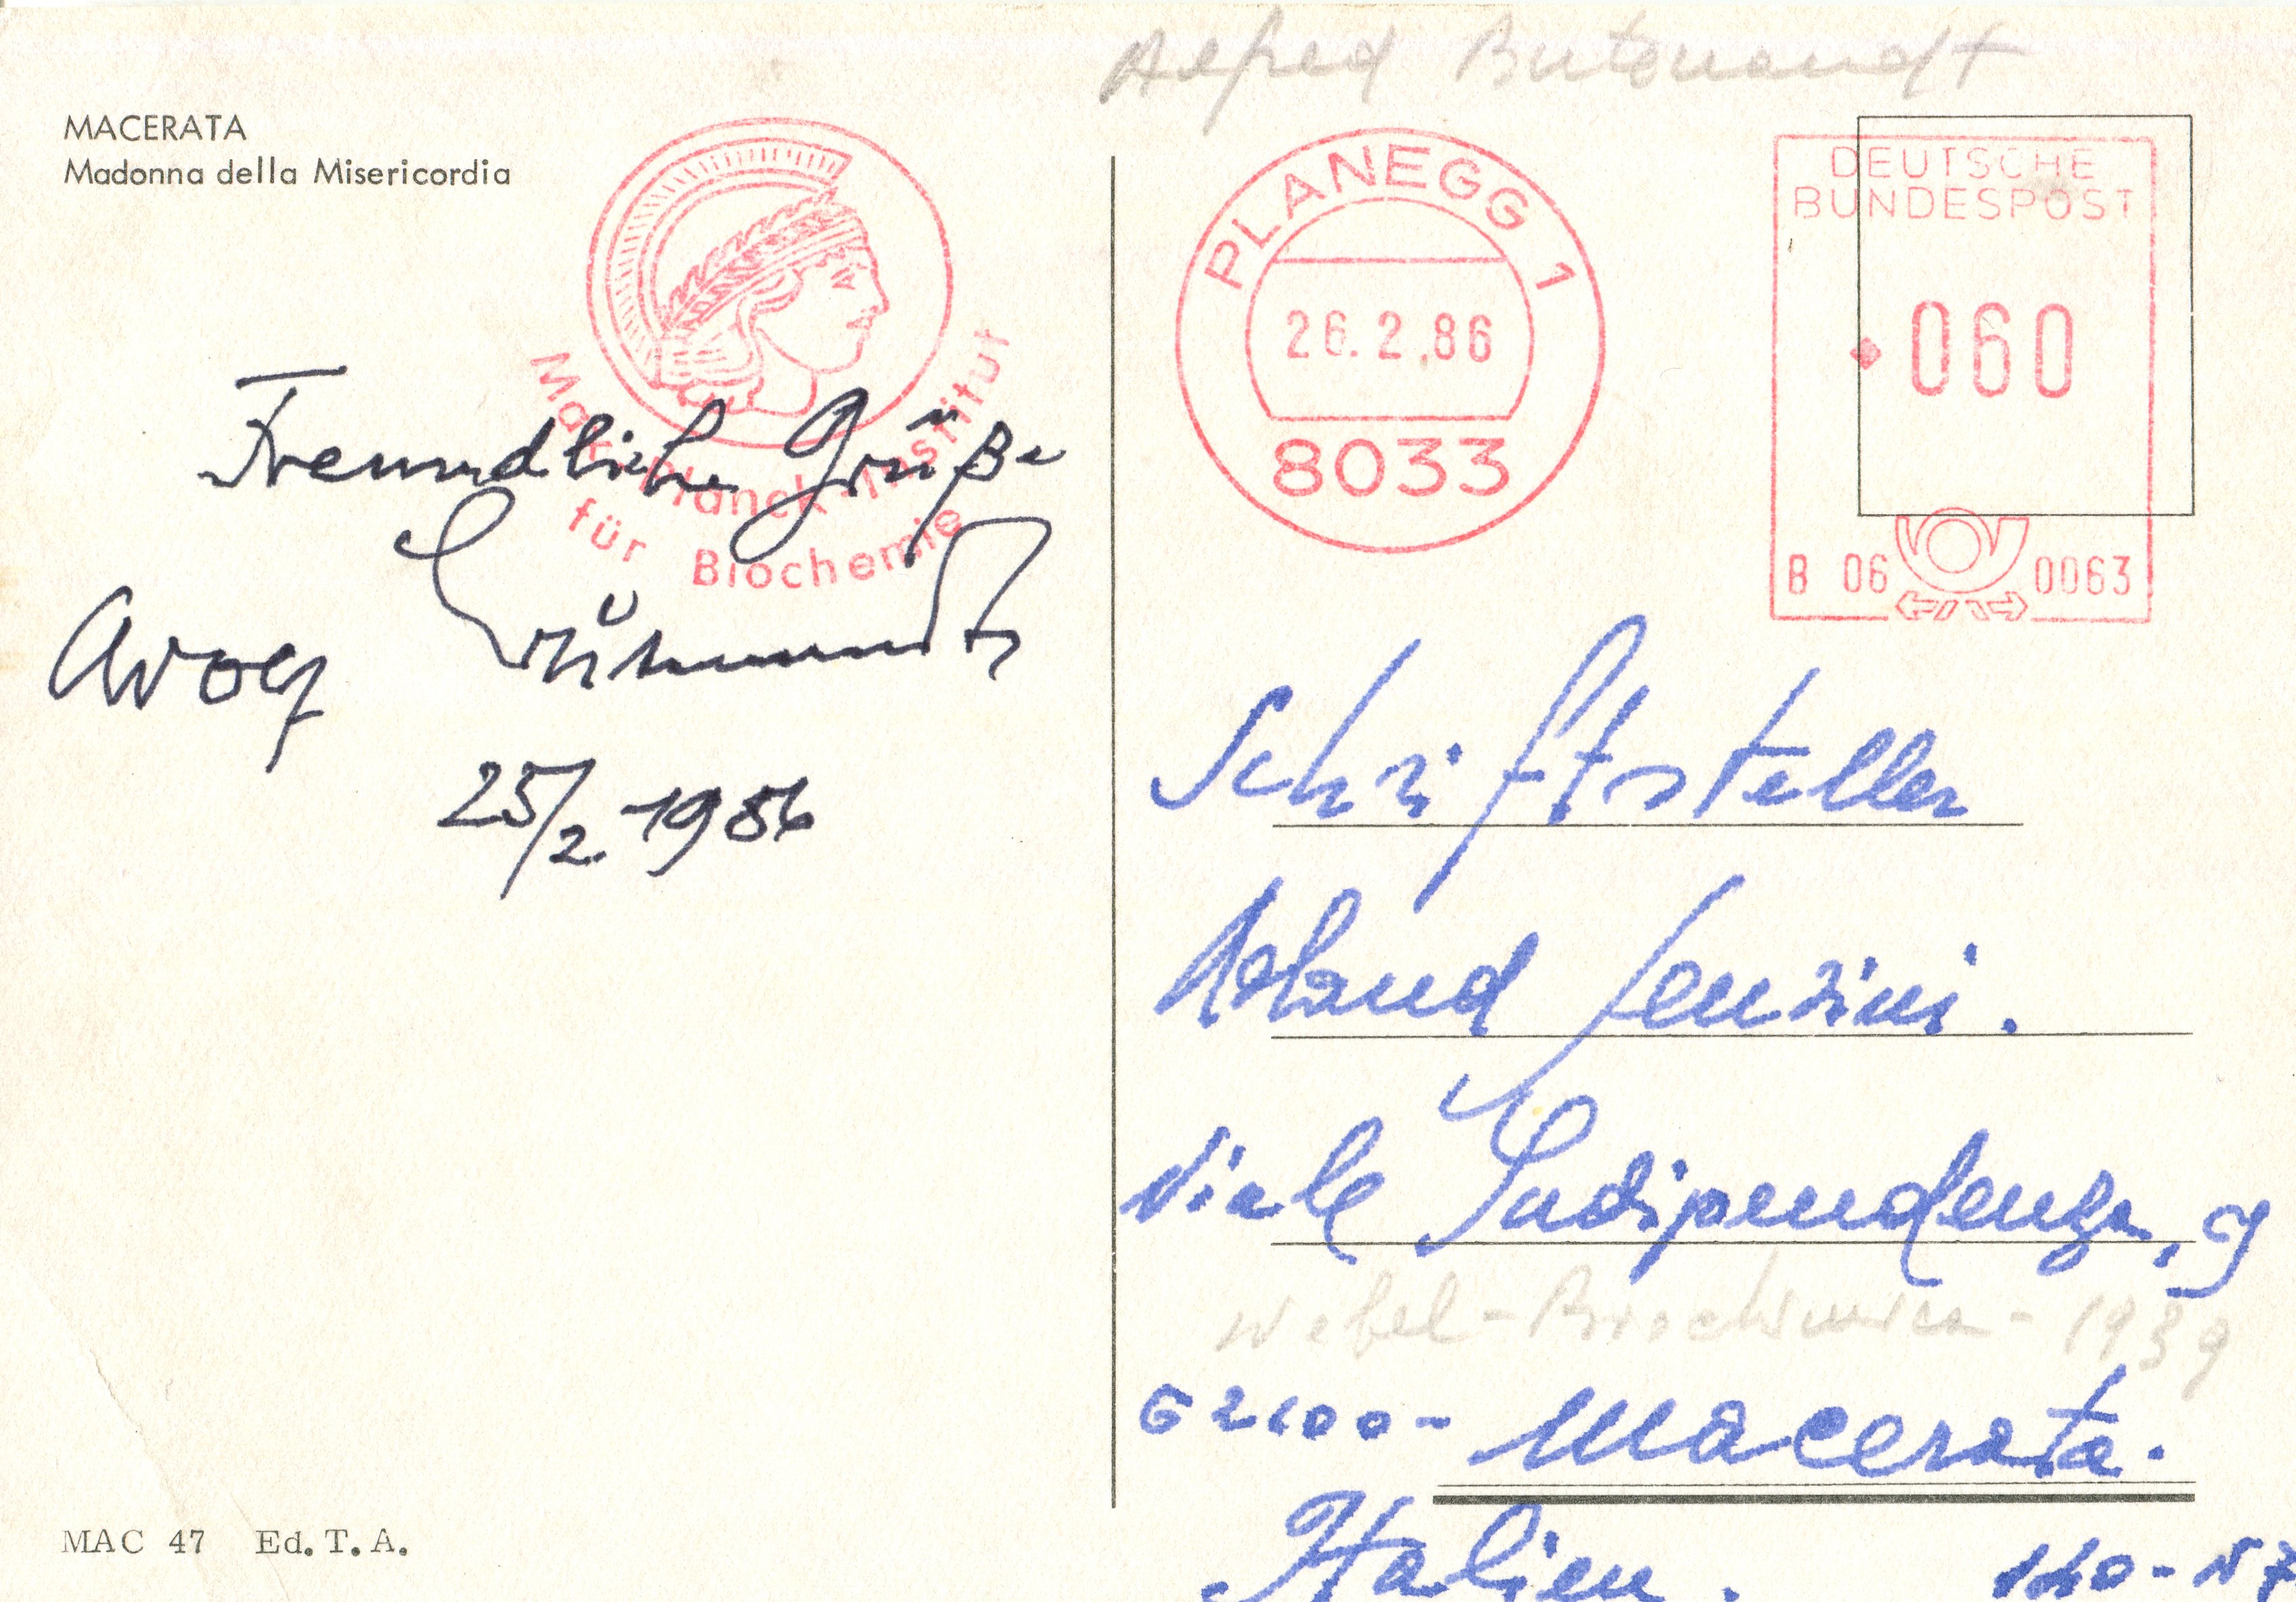 Alfred Butenandt
MACERATA
Madonna della Misericordia
Max-Planck-Institut
für Biochemie
PLANEGG 1
26.2.86
8033
DEUTSCHE
BUNDESPOST
060
B 06 0063
Freundliche Grüße
25/2. 1986
Schriftsteller
Viale Indipendenza, 9
Nobel - Biochimica - 1939
62100 - Macerata.
Italien.
MAC 47 Ed. T. A.